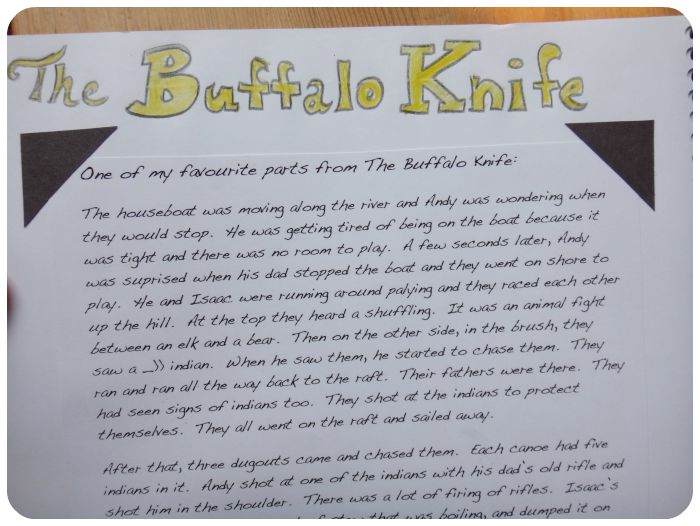 The Buffalo Knife
One of my favourite parts from The Buffalo Knife:
The houseboat was moving along the river and Andy was wondering when
they would stop. He was getting tired of being on the boat because it
was tight and there was no room to play. A few seconds later, Andy
was suprised when his dad stopped the boat and they went on shore to
play. He and Isaac were running around palying and they raced each other
up the hill. At the top they heard a shuffling. It was an animal fight
between an elk and a bear. Then on the other side, in the brush, they
saw a _)) indian. When he saw them, he started to chase them. They
ran and ran all the way back to the raft. Their fathers were there. They
had seen signs of indians too. They shot at the indians to protect
themselves. They all went on the raft and sailed away.
After that, three dugouts came and chased them. Each canoe had five
indians in it. Andy shot at one of the indians with his dad's old rifle and
shot him in the shoulder. There was a lot of firing of rifles. Isaac's
that was boiling, and dumped it on